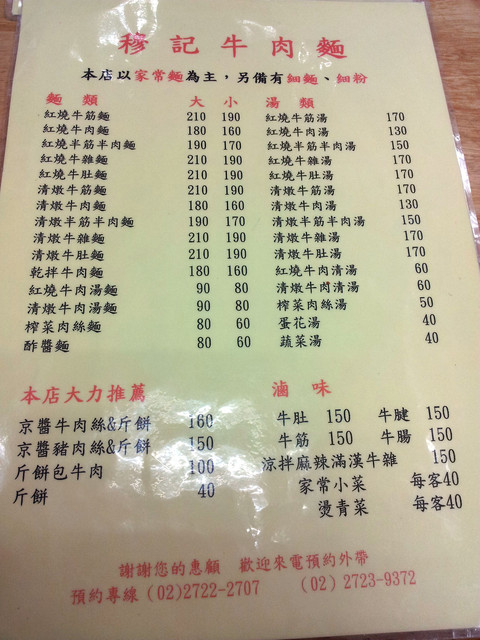 穆記牛肉麵
本店以家常麵為主，另備有細麵、細粉
麵類 大 小
紅燒牛筋麵 210 190
紅燒牛肉麵 180 160
紅燒半筋半肉麵 190 170
紅燒牛雜麵 210 190
紅燒牛肚麵 210 190
清燉牛筋麵 210 190
清燉牛肉麵 180 160
清燉半筋半肉麵 190 170
清燉牛雜麵 210 190
清燉牛肚麵 210 190
乾拌牛肉麵 180 160
紅燒牛肉湯麵 90 80
清燉牛肉湯麵 90 80
榨菜肉絲麵 80 60
酢醬麵 80 60
湯類
紅燒牛筋湯 170
紅燒牛肉湯 130
紅燒半筋半肉湯 150
紅燒牛雜湯 170
紅燒牛肚湯 170
清燉牛筋湯 170
清燉牛肉湯 130
清燉半筋半肉湯 150
清燉牛雜湯 170
清燉牛肚湯 170
紅燒牛肉清湯 60
清燉牛肉清湯 60
榨菜肉絲湯 50
蛋花湯 40
蔬菜湯 40
本店大力推薦
京醬牛肉絲&斤餅 160
京醬豬肉絲&斤餅 150
斤餅包牛肉 100
斤餅 40
滷味
牛肚 150 牛腱 150
牛筋 150 牛腸 150
涼拌麻辣滿漢牛雜 150
家常小菜 每客40
燙青菜 每客40
謝謝您的惠顧 歡迎來電預約外帶
預約專線(02)2722-2707 (02) 2723-9372